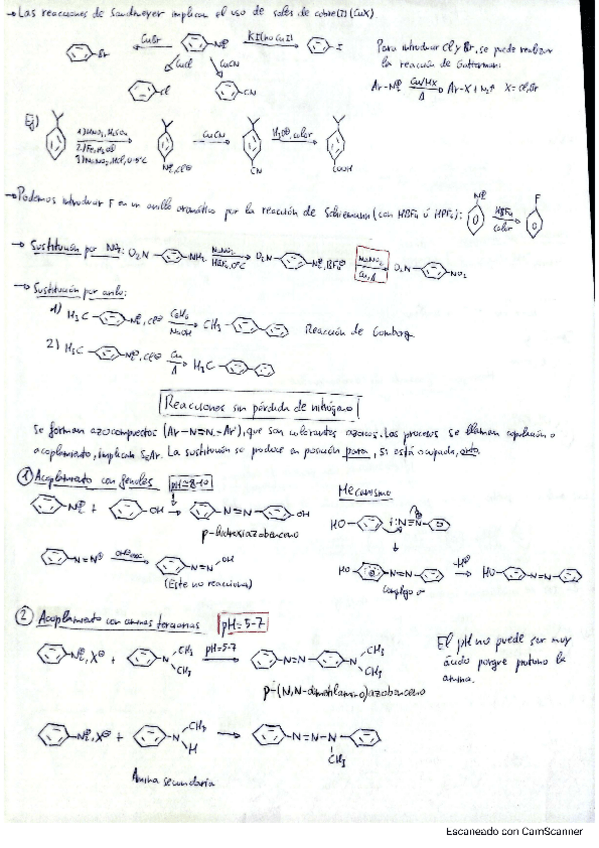 → Las reacciones de Sandmeyer implican el uso de sales de cobre(I) (CuX).
Br CuBr N₂⊕ KI (no CuI) I
CuCl CuCN
Cl CN
Para introducir Cl y Br, se puede realizar
la reacción de Gattermann
Ar-N₂⊕ Cu/HX Δ Ar-X + N₂↑ X=Cl,Br
Ej)
1) HNO₃, H₂SO₄
2) Fe, H₃O⊕
3) NaNO₂, HCl, 0-5°C
N₂⊕, Cl⊖ CuCN CN H₃O⊕, calor COOH
→ Podemos introducir F en un anillo aromático por la reacción de Schiemann (con HBF₄ ó HPF₆): N₂⊕ HBF₄ calor F
→ Sustitución por NO₂: O₂N NH₂ NaNO₂ HBF₄, 0°C O₂N N₂⊕, BF₄⊖ NaNO₂ Cu, Δ O₂N NO₂
→ Sustitución por arilo:
1) H₃C N₂⊕, Cl⊖ C₆H₆ NaOH CH₃ Reacción de Gomberg
2) H₃C N₂⊕, Cl⊖ Cu Δ H₃C
Reacciones sin pérdida de nitrógeno
Se forman azocompuestos (Ar-N=N-Ar'), que son colorantes azoicos. Los procesos se llaman copulación o
acoplamiento, implican SEAr. La sustitución se produce en posición para, si está ocupada, orto.
① Acoplamiento con fenoles pH=8-10
N₂⊕ + OH → N=N OH
p-hidroxiazobenceno
Mecanismo
HO N≡N
HO N=N -H⊕ HO N=N
Complejo σ
N=N⊕ OH⊖ exc. N=N OH
(Este no reacciona)
② Acoplamiento con aminas terciarias pH=5-7
N₂⊕, X⊖ + N CH₃ CH₃ pH=5-7 N=N N CH₃ CH₃
p-(N,N-dimetilamino)azobenceno
El pH no puede ser muy
ácido porque protona la
amina.
N₂⊕, X⊖ + N CH₃ H → N=N-N CH₃
Amina secundaria
Escaneado con CamScanner